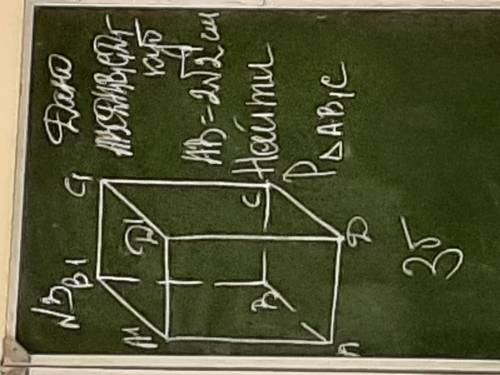 N3
Дано
ABCDA1B1C1D1
куб
AB = 2√2 см
Найти
P△AB1C
B1
C1
A1
D1
B
C
A
D
35